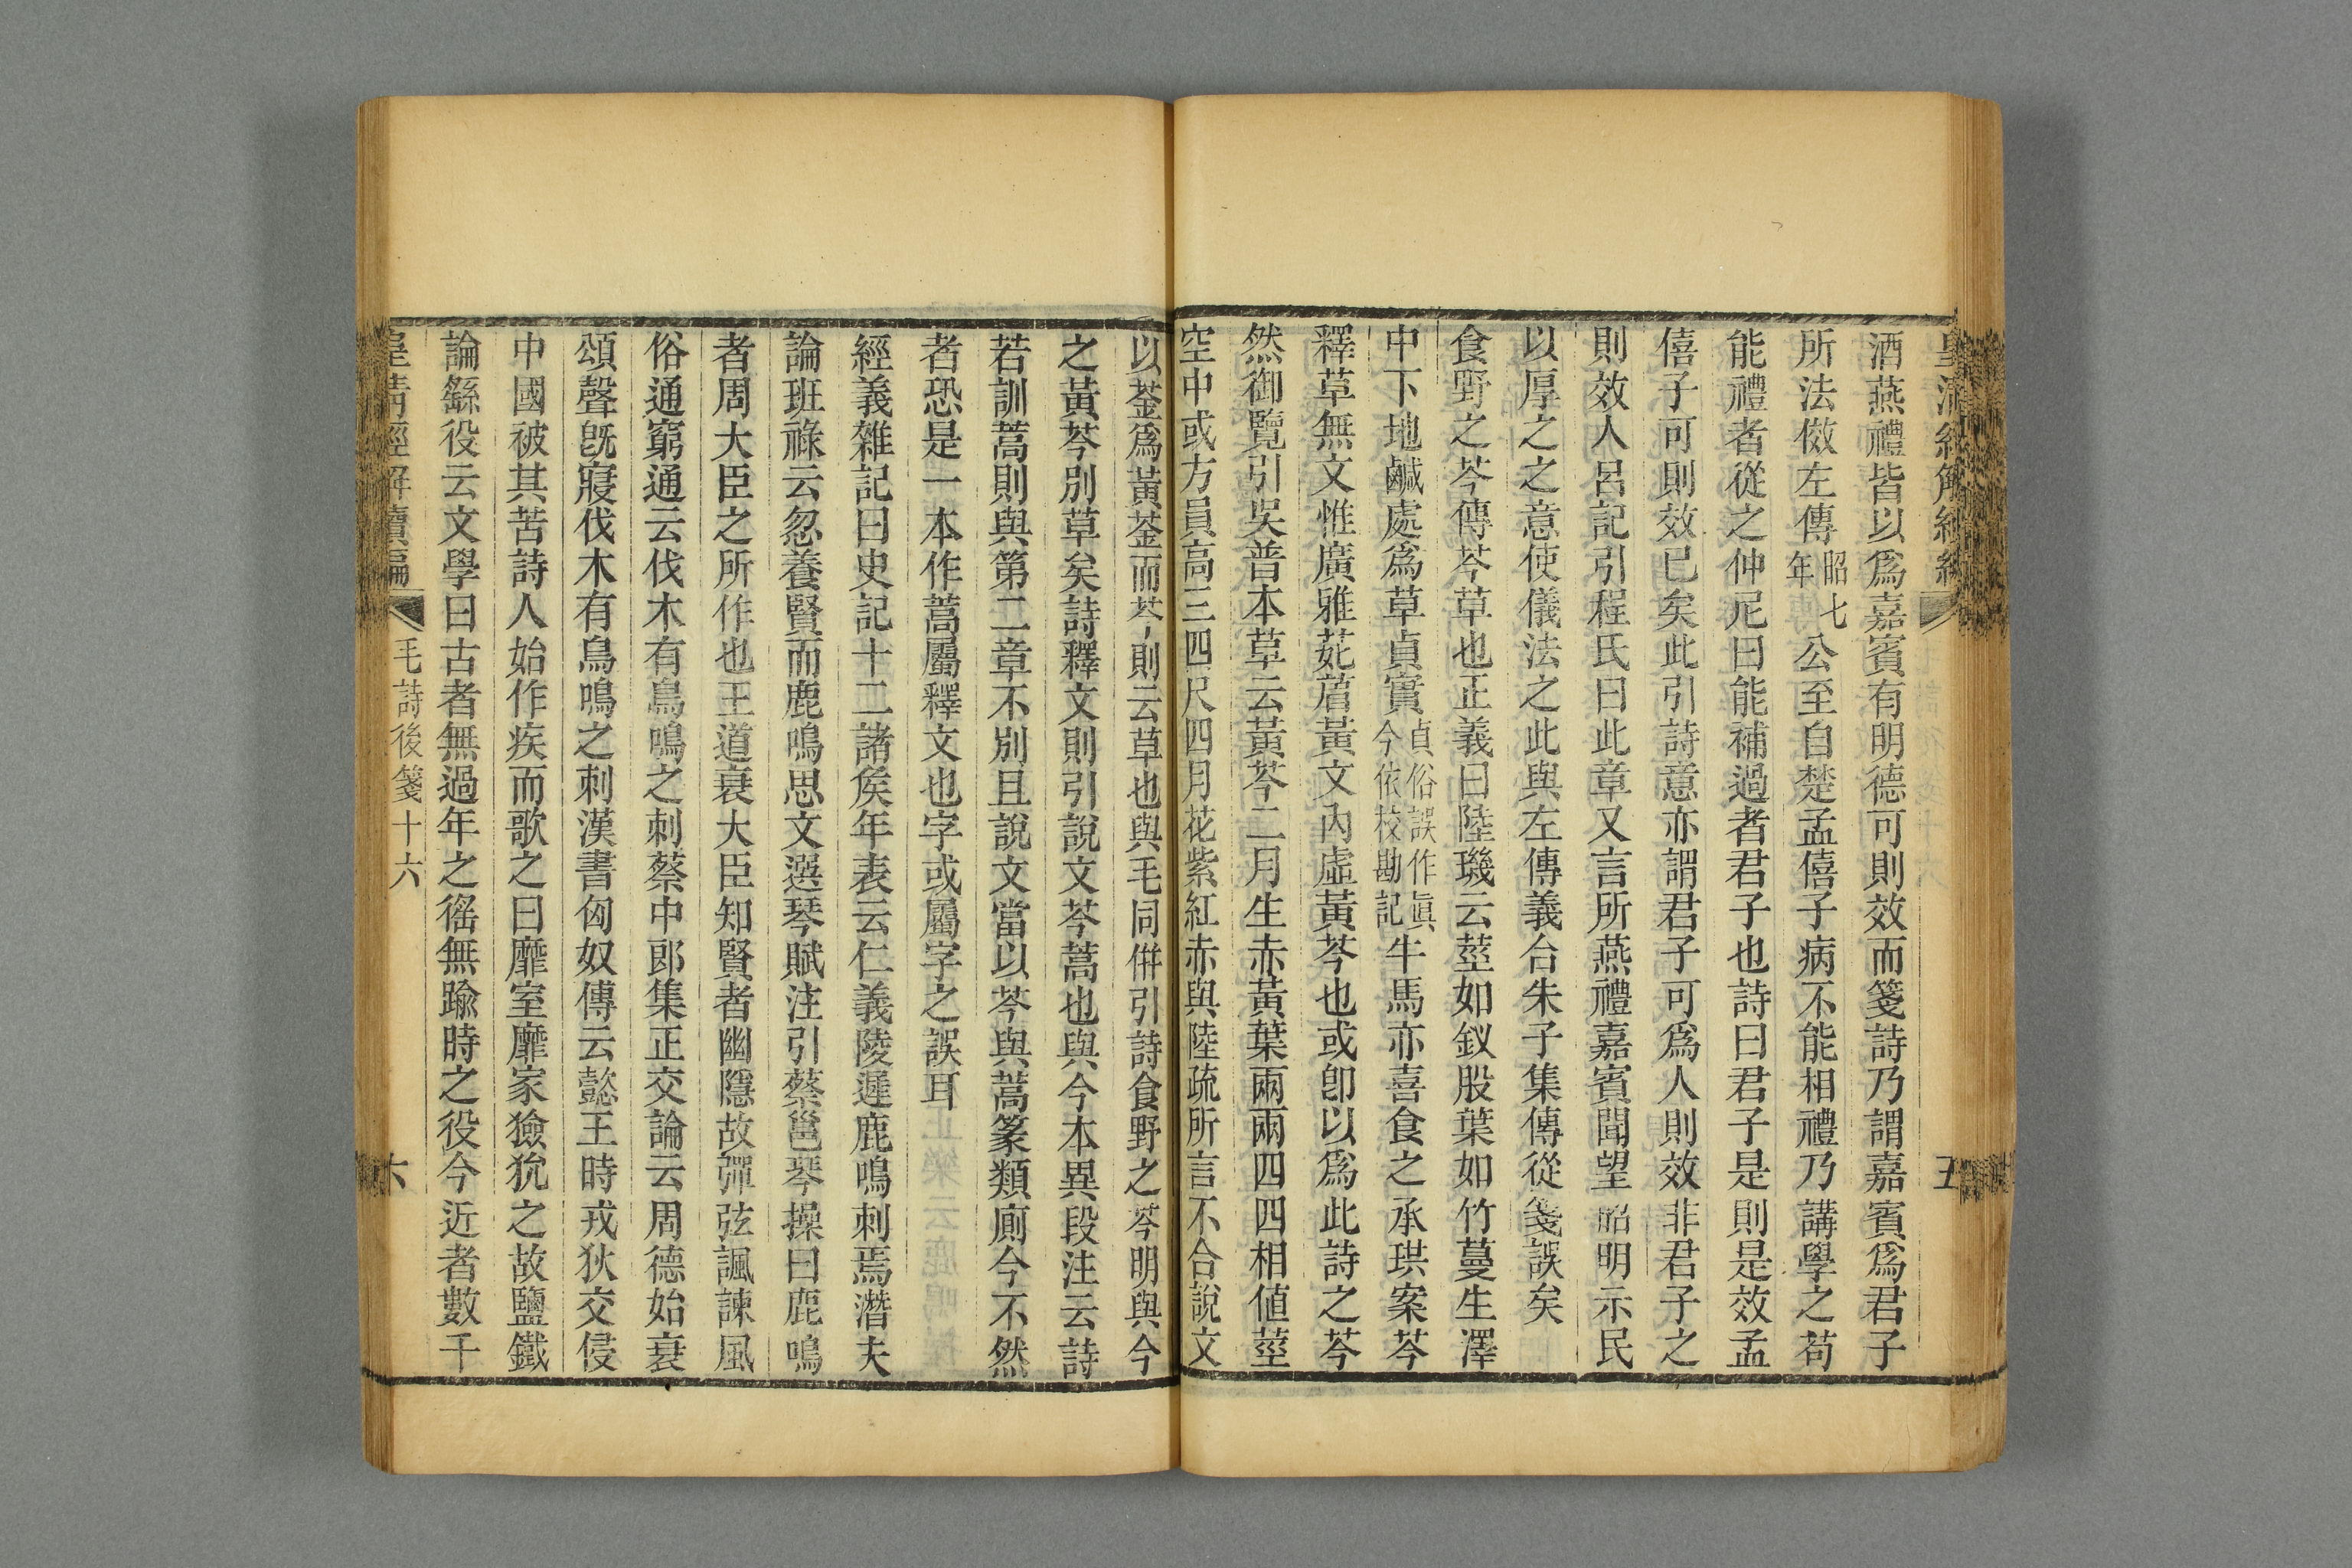 酒燕禮皆以爲嘉賓有明德可則效而箋詩乃謂嘉賓爲君子
所法傚左傳昭七年公至自楚孟僖子病不能相禮乃講學之苟
能禮者從之仲尼曰能補過者君子也詩曰君子是則是效孟
僖子可則效已矣此引詩意亦謂君子可爲人則效非君子之
則效人呂記引程氏曰此章又言所燕禮嘉賓聞望昭明示民
以厚之之意使儀法之此與左傳義合朱子集傳從箋誤矣
食野之芩傳芩草也正義曰陸璣云莖如釵股葉如竹蔓生澤
中下地鹹處爲草貞實貞俗誤作眞今依校勘記牛馬亦喜食之承珙案芩
釋草無文惟廣雅菰葿黃文內虛黃芩也或卽以爲此詩之芩
然御覽引吳普本草云黃芩二月生赤黃葉兩兩四四相値莖
空中或方員高三四尺四月花紫紅赤與陸疏所言不合說文
以莶爲黃莶而芩則云草也與毛同併引詩食野之芩明與今
之黃芩別草矣詩釋文則引說文芩蒿也與今本異段注云詩
若訓蒿則與第二章不別且說文當以芩與蒿篆類廁今不然
者恐是一本作蒿屬釋文也字或屬字之誤耳
經義雜記曰史記十二諸矦年表云仁義陵遲鹿鳴刺焉潛夫
論班祿云忽養賢而鹿鳴思文選琴賦注引蔡邕琴操曰鹿鳴
者周大臣之所作也王道衰大臣知賢者幽隱故彈弦諷諫風
俗通窮通云伐木有鳥鳴之刺蔡中郎集正交論云周德始衰
頌聲旣寢伐木有鳥鳴之刺漢書匈奴傳云懿王時戎狄交侵
中國被其苦詩人始作疾而歌之曰靡室靡家獫狁之故鹽鐵
論繇役云文學曰古者無過年之徭無踰時之役今近者數千
皇淸經解續編
毛詩後箋十六
六